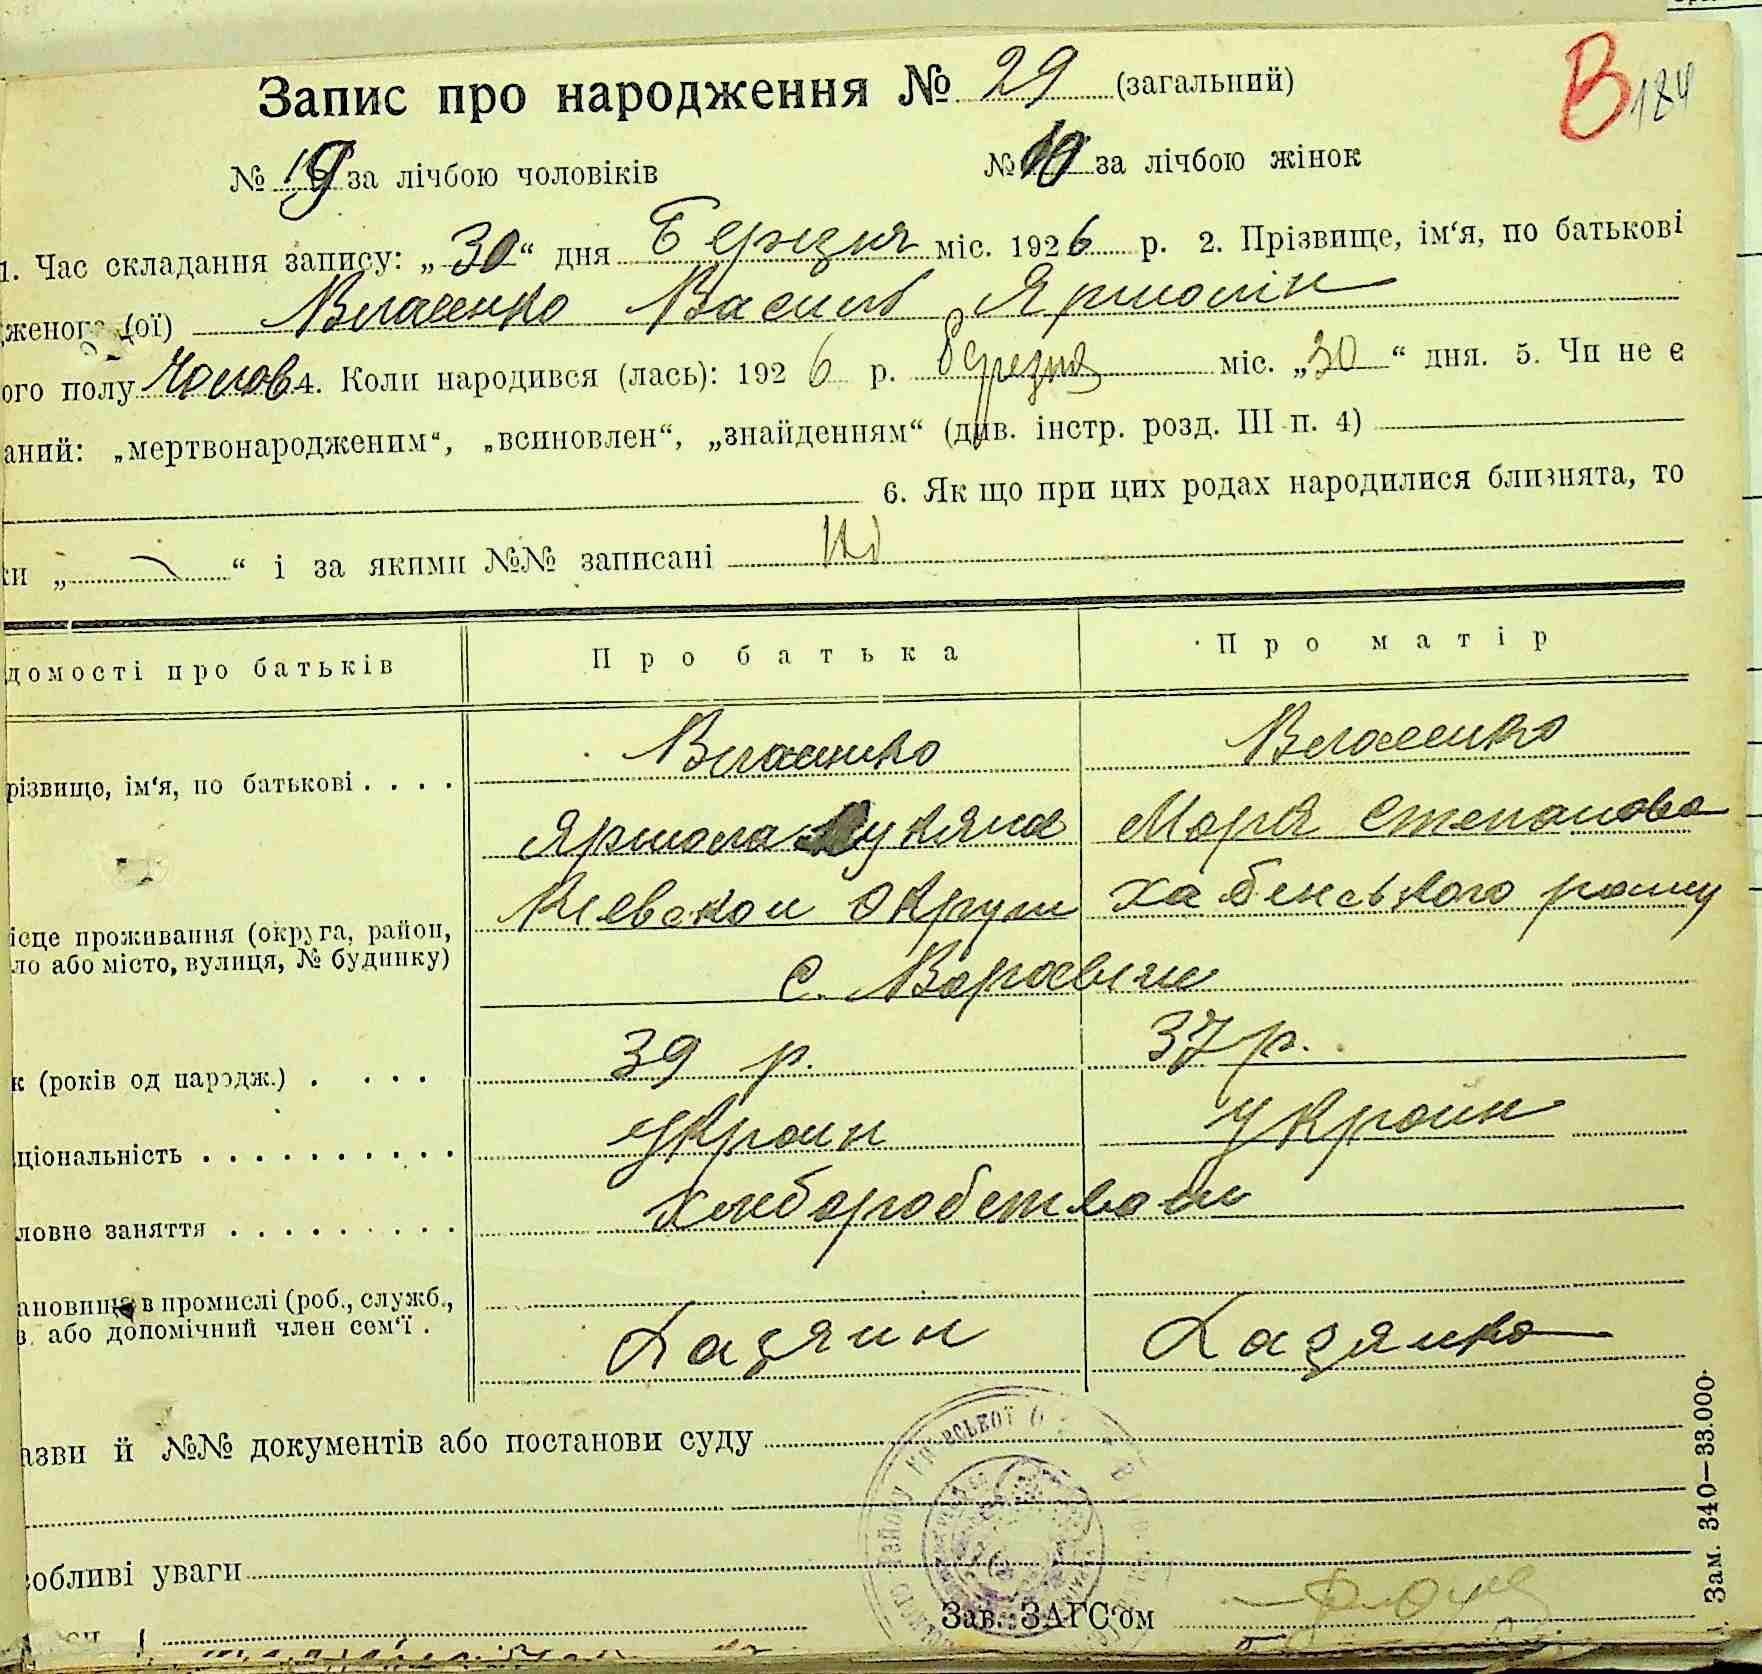 Запис про народження № 29 (загальний)
В 184
№ 19 за лічбою чоловіків № 10 за лічбою жінок
1. Час складання запису: „30“ дня Березня міс. 1926 р. 2. Прізвище, ім‘я, по батькові
дженого (ої) Власенко Василь Ярмолін
ого полу Чолов 4. Коли народився (лась): 1926 р. березня міс. „30“ дня. 5. Чи не є
аний: „мертвонародженим“, „всиновлен“, „знайденням“ (див. інстр. розд. III п. 4)
6. Як що при цих родах народилися близнята, то
ки „ “ і за якими №№ записані Ні
домості про батьків Про батька Про матір
різвище, ім‘я, по батькові . . . . Власенко Власенко
Ярмола Лукяна Марія Степанова
ісце проживання (округа, район, Киевскои Округи Хабенського рону
ло або місто, вулиця, № будинку) с. Варовичи
к (років од народж.) . . . . 39 р. 37 р.
ціональність . . . . . . . . . . Украин Украин
ловне заняття . . . . . . . . . Хлиборобством
ановище в промислі (роб., служб.,
в. або допомічний член сем‘ї . Хазяин Хазяйка
азви й №№ документів або постанови суду
собливі уваги
Зав. ЗАГС‘ом
Зам. 340—33.000.